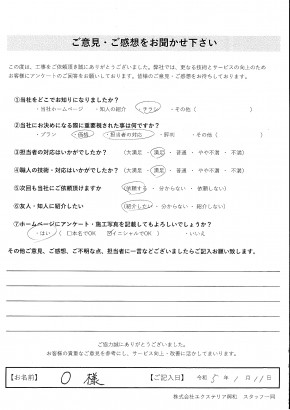 ご意見・ご感想をお聞かせ下さい
この度は、工事をご依頼頂き誠にありがとうございました。弊社では、更なる技術とサービスの向上のため
お客様にアンケートのご回答をお願いしております。皆様のご意見・ご感想をお待ちしております。
①当社をどこでお知りになりましたか？
・当社ホームページ ・知人の紹介 ・チラシ ・その他（ ）
②当社にお決めになる際に重要視された事は何ですか？
・プラン ・価格 ・担当者の対応 ・評判 ・その他（ ）
③担当者の対応はいかがでしたか？ （大満足 ・ 満足 ・ 普通 ・ やや不満 ・ 不満）
④職人の技術・対応はいかがでしたか？ （大満足 ・ 満足 ・ 普通 ・ やや不満 ・ 不満）
⑤次回も当社にご依頼頂けますか （依頼する ・ 分からない ・ 依頼しない）
⑥友人・知人に紹介したい （紹介したい ・ 分からない ・ 紹介しない）
⑦ホームページにアンケート・施工写真を記載してもよろしいでしょうか？
・はい （ □本名でOK ☑イニシャルでOK ） ・いいえ
その他ご意見、ご感想、ご不明な点、担当者に一言などございましたらご記入お願い致します。
ご協力誠にありがとうございました。
お客様の貴重なご意見を参考にし、サービス向上・改善に活かしてまいります。
【お名前】 O 様 【ご記入日】 令和 5年 1月11日
株式会社エクステリア興和 スタッフ一同